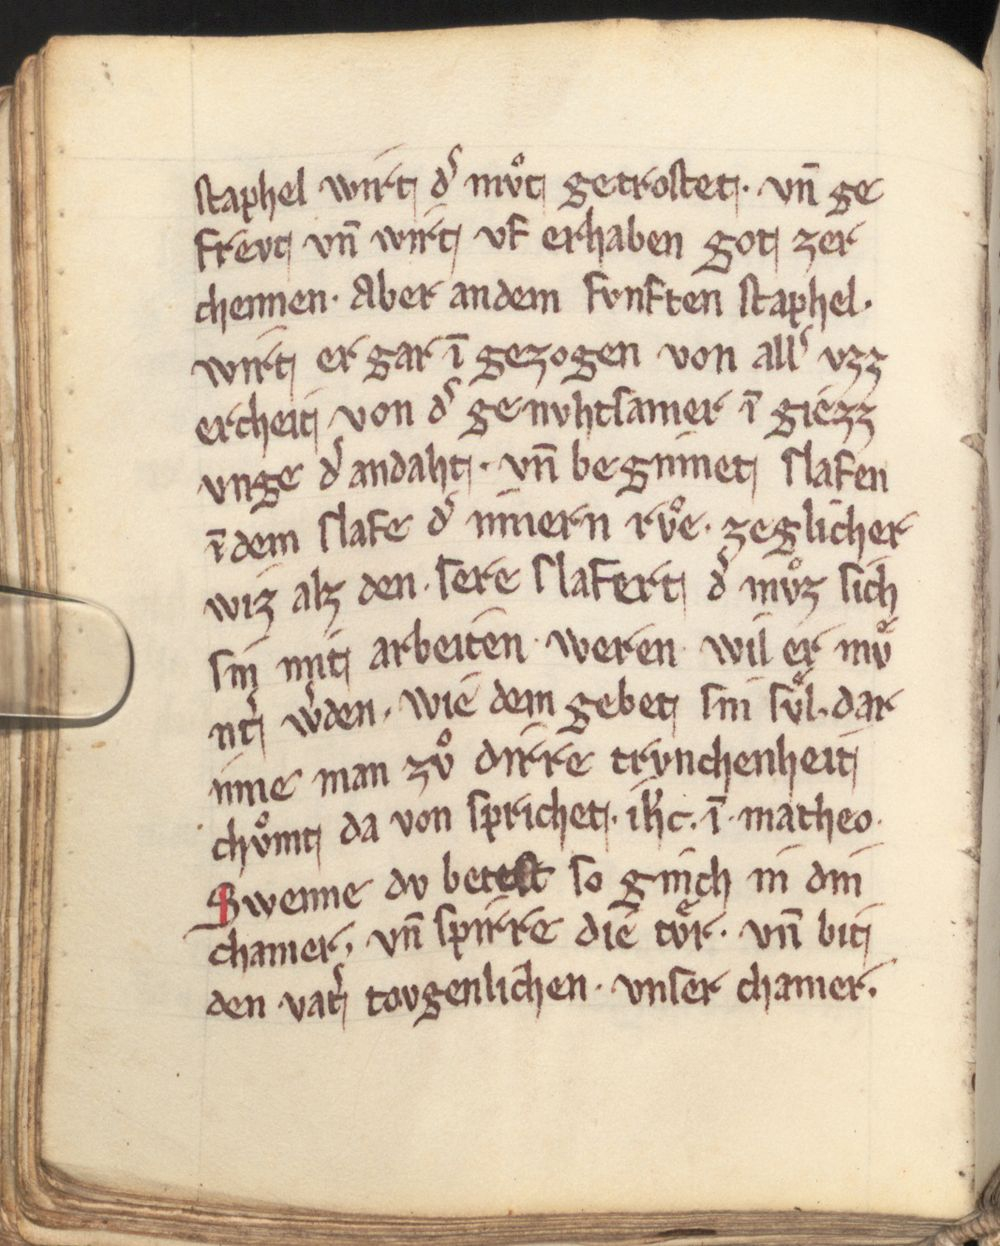 staphel wirt dˢ mvͦt getrostet· vn̄ ge
frevt vn̄ wirt vf erhaben got zer
chennen· Aber an dem fvnften staphel·
wirt er gar ī gezogen von allˢ vzz
ercheit von dˢ genvhtsamer ī giezz
vnge dˢ andaht· vn̄ beginnet slafen
ī dem slafe dˢ innern rvͦe· zeglicher
wiz alz den· sere slafert dˢ mvͦz sich
sin mit arbeiten· weren· wil er mvͦ
ntˢ wˢden· wie dem gebet sin svͤl· dar
inne man zvͦ dirre trvnchenheit
chvͦmt da von sprichet· ihc· ī· matheo·
Swenne dv betest so ginch in din
chamer, vn̄ spirre die tvͤr· vn̄ bit
den· vatˢ tovgenlichen· vnser chamer·